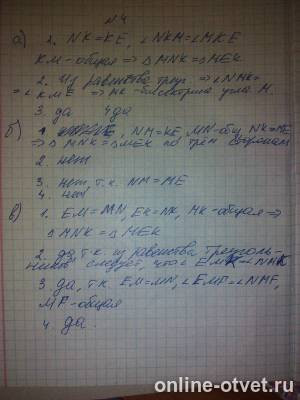 №4
а) 2. NK=KE, ∠NKM=∠MKE
KM-общая ⇒ △MNK=△MEK
2. Из равенства треуг. ⇒ ∠NMK=
=∠KME ⇒ MK-биссектриса угла M.
3. да 4 да
б) 1. NM=KE, MN-общ, NK=ME
⇒ △MNK=△MEK по трём сторонам
2 нет
3. нет, т.к. NM=ME
4. нет
в) 1. EM=MN, EK=NK, MK-общая ⇒
△MNK=△MEK
2. да, т.к. из равенства треуголь-
ников следует, что ∠EMK=∠NMK
3. да, т.к. EM=MN, ∠EMF=∠NMF,
MF-общая
4. да.
online-otvet.ru